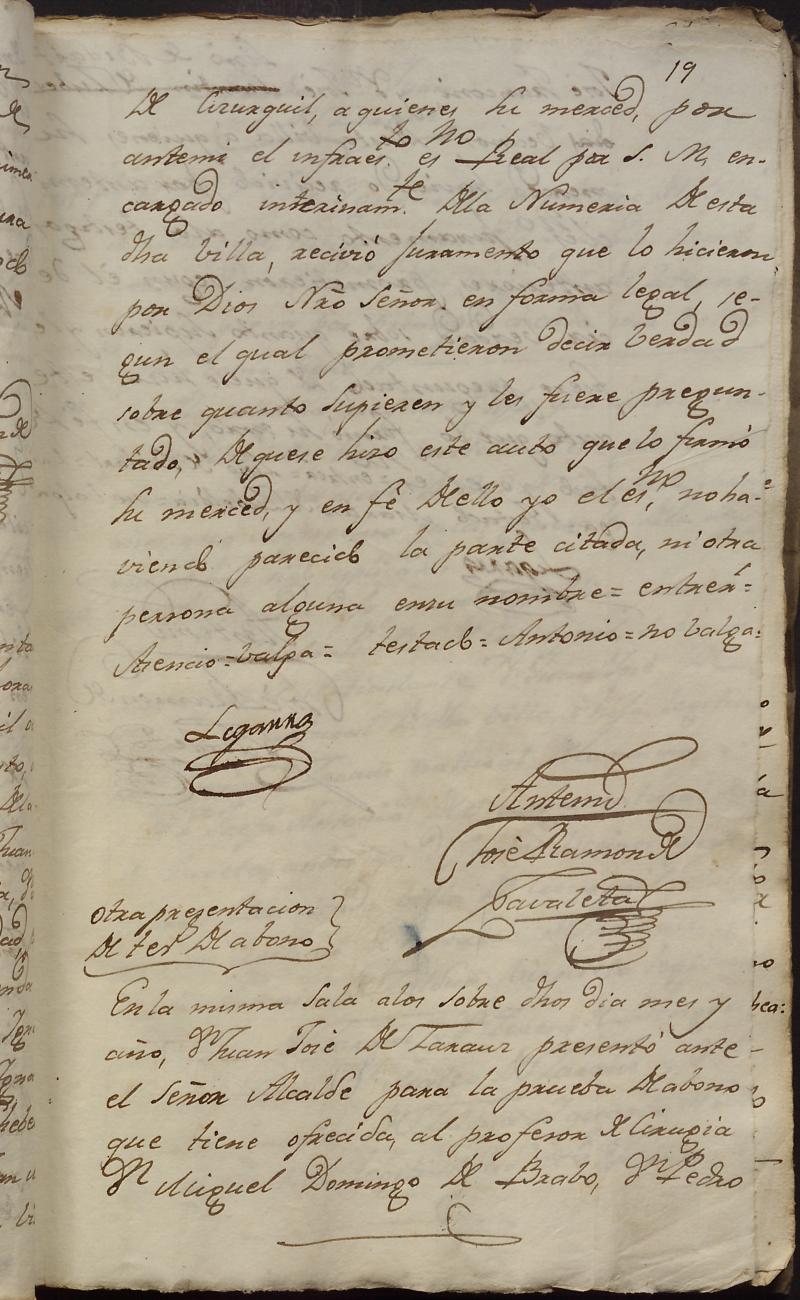 19
De Cirurguil, a quienes su merced, por
antemi el infraes.to no es Real por S. M. en-
cargado interinam.te Dla Numeria De esta
dha villa, recivió juramento que lo hicieron
por Dios Nrõ Señor en forma legal, se-
gun el qual prometieron decir verdad
sobre quanto supieren y les fuere pregun-
tado, De quese hizo este auto que lo firmó
su merced, y en fè Dello yo el es.no, noha-
viendo parecido la parte citada, ni otra
persona alguna ensu nombre = entrerr.s =
Asencio = valga = testado = Antonio = no balga:
Antemi
José Ramon De
Zavaleta
otra presentacion
De tes.s De abono
En la misma Sala alos sobre dhos dia mes y
año, Dn Juan José De Taraur presentó ante
el Señor Alcalde para la prueba De abono
que tiene ofrecida, al profesor De Cirugia
Dn Miguel Domingo De Brabo, Dn Pedro